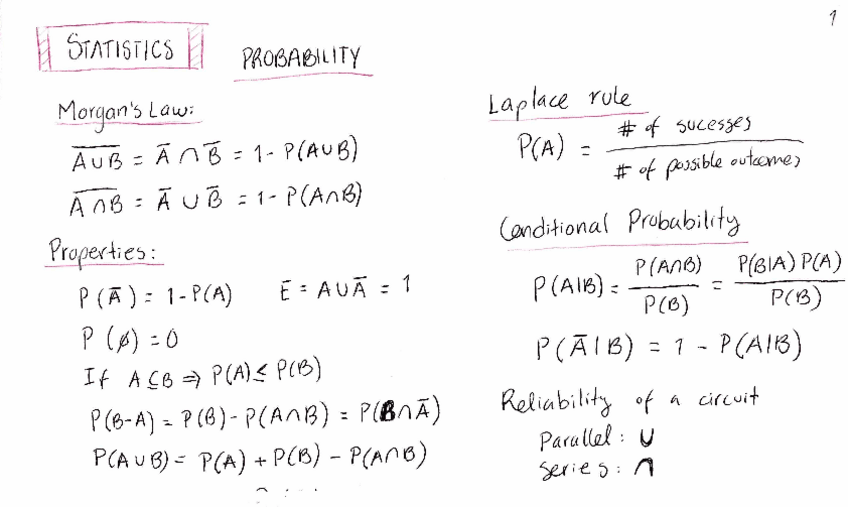 1
STATISTICS
PROBABILITY
Morgan's Law:
$\overline{A \cup B} = \bar{A} \cap \bar{B} = 1 - P(A \cup B)$
$\overline{A \cap B} = \bar{A} \cup \bar{B} = 1 - P(A \cap B)$
Properties:
$P(\bar{A}) = 1 - P(A)$ $\bar{E} = A \cup \bar{A} = 1$
$P(\emptyset) = 0$
If $A \subseteq B \Rightarrow P(A) \leq P(B)$
$P(B-A) = P(B) - P(A \cap B) = P(B \cap \bar{A})$
$P(A \cup B) = P(A) + P(B) - P(A \cap B)$
Laplace rule
$P(A) = \frac{\text{\# of sucesses}}{\text{\# of possible outcomes}}$
Conditional Probability
$P(A|B) = \frac{P(A \cap B)}{P(B)} = \frac{P(B|A) P(A)}{P(B)}$
$P(\bar{A}|B) = 1 - P(A|B)$
Reliability of a circuit
Parallel: ∪
Series: ∩